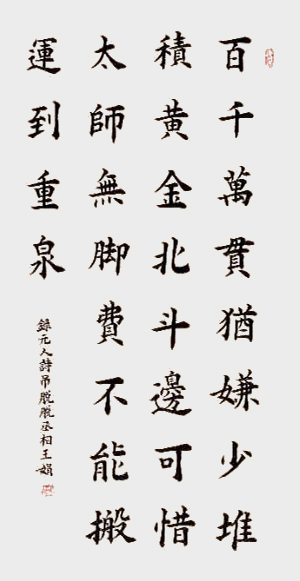 百千萬貫猶嫌少堆
積黃金北斗邊可惜
太師無脚費不能搬
運到重泉
錄元人詩吊脫脫丞相王娟